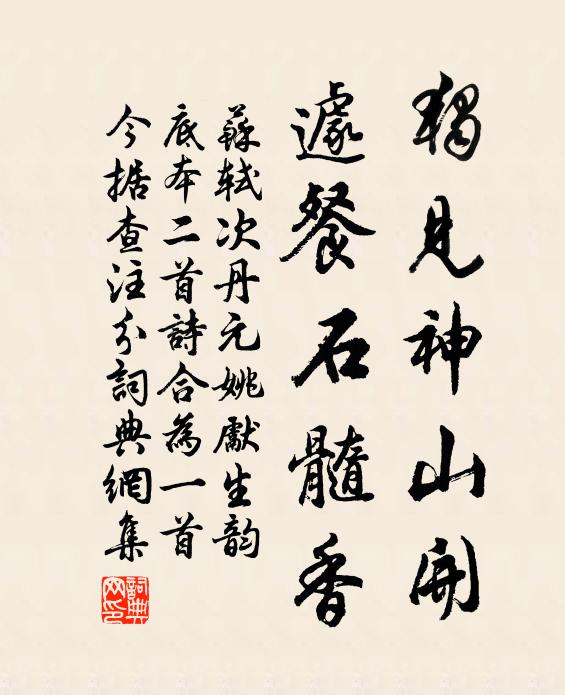 獨見神山開
遽餐石髓香
蘇軾次丹元姚獻生韵
底本二首詩合為一首
今据查注分詞典網集
詞典
网印